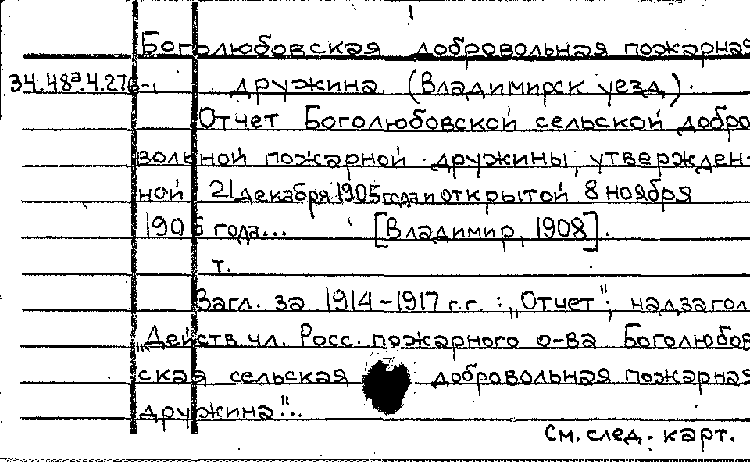 Боголюбовская добровольная пожарная
34.48а.4.276-. дружина (Владимирск уезд)
Отчет Боголюбовской сельской добро
вольной пожарной дружины, утвержден-
ной 21 декабря 1905 года и открытой 8 ноября
1906 года... [Владимир, 1908].
т.
Загл. за 1914-1917 г.г. : „Отчет"; надзагол
„Действ. чл. Росс. пожарного о-ва Боголюбов
ская сельская добровольная пожарная
дружина"...
См. след. карт.